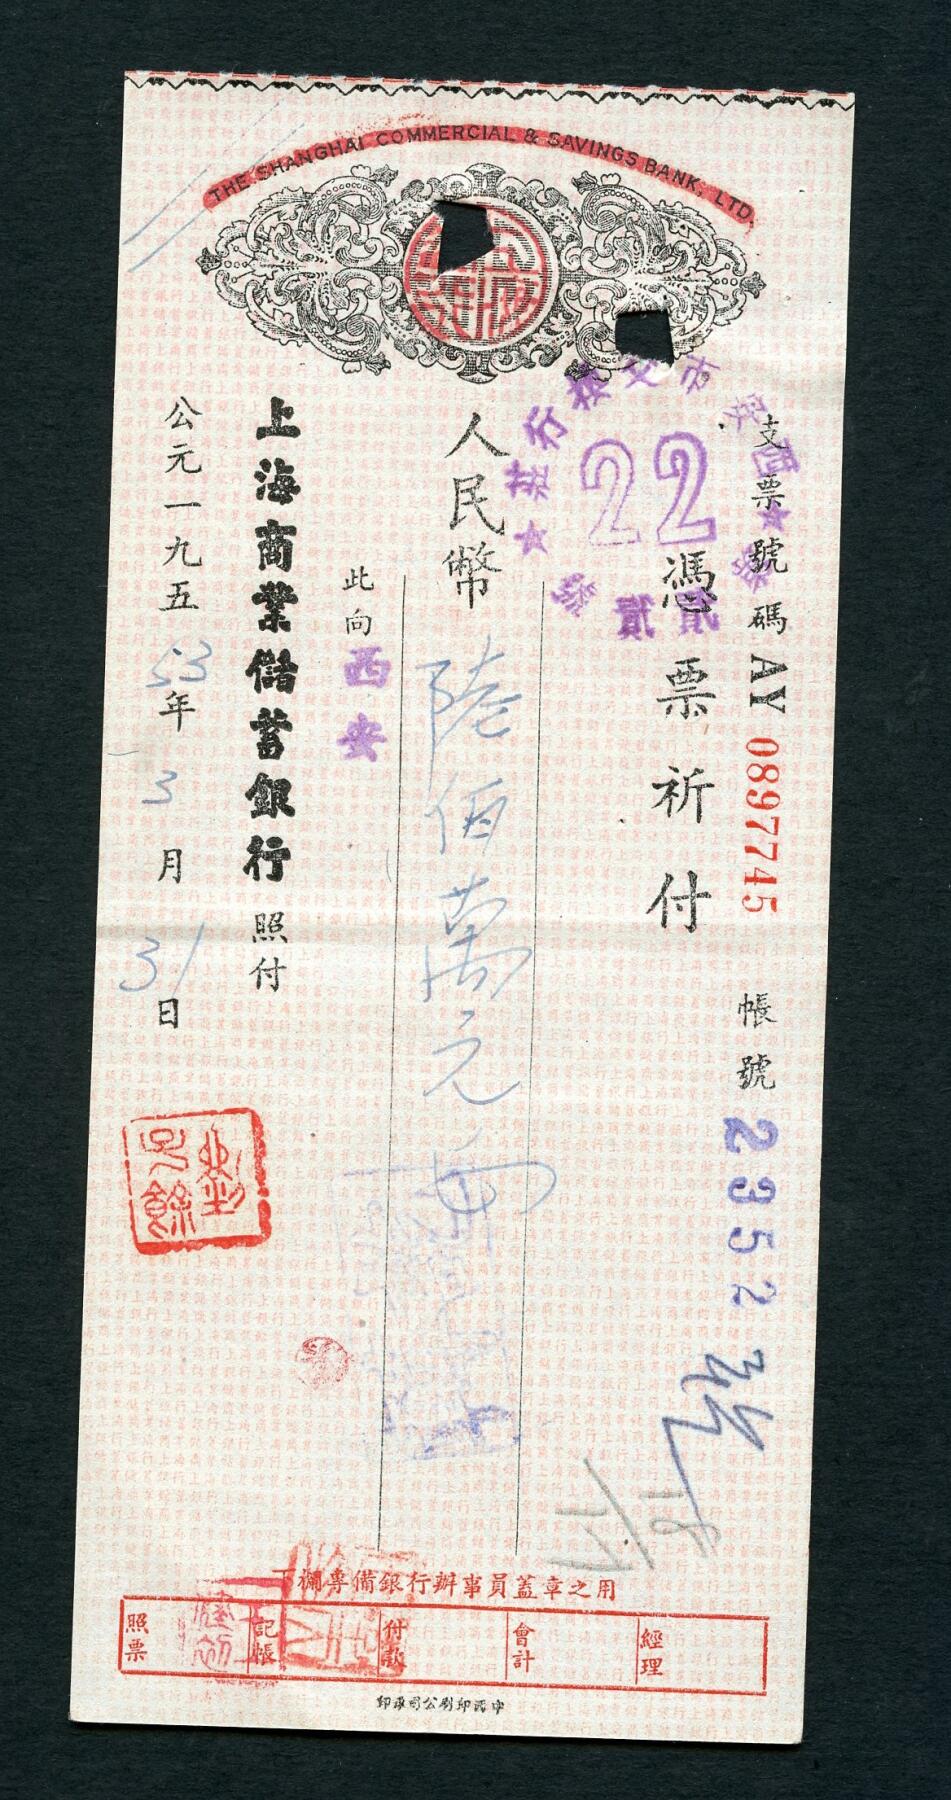 THE SHANGHAI COMMERCIAL & SAVINGS BANK, LTD.
支票號碼 AY 0897745
帳號 2352
22
貳貳
憑票祈付
人民幣 陸佰萬元
此向西安
上海商業儲蓄銀行照付
公元一九五53年3月31日
下欄專備銀行辦事員蓋章之用
照票
記帳
付款
會計
經理
中國印刷公司承印